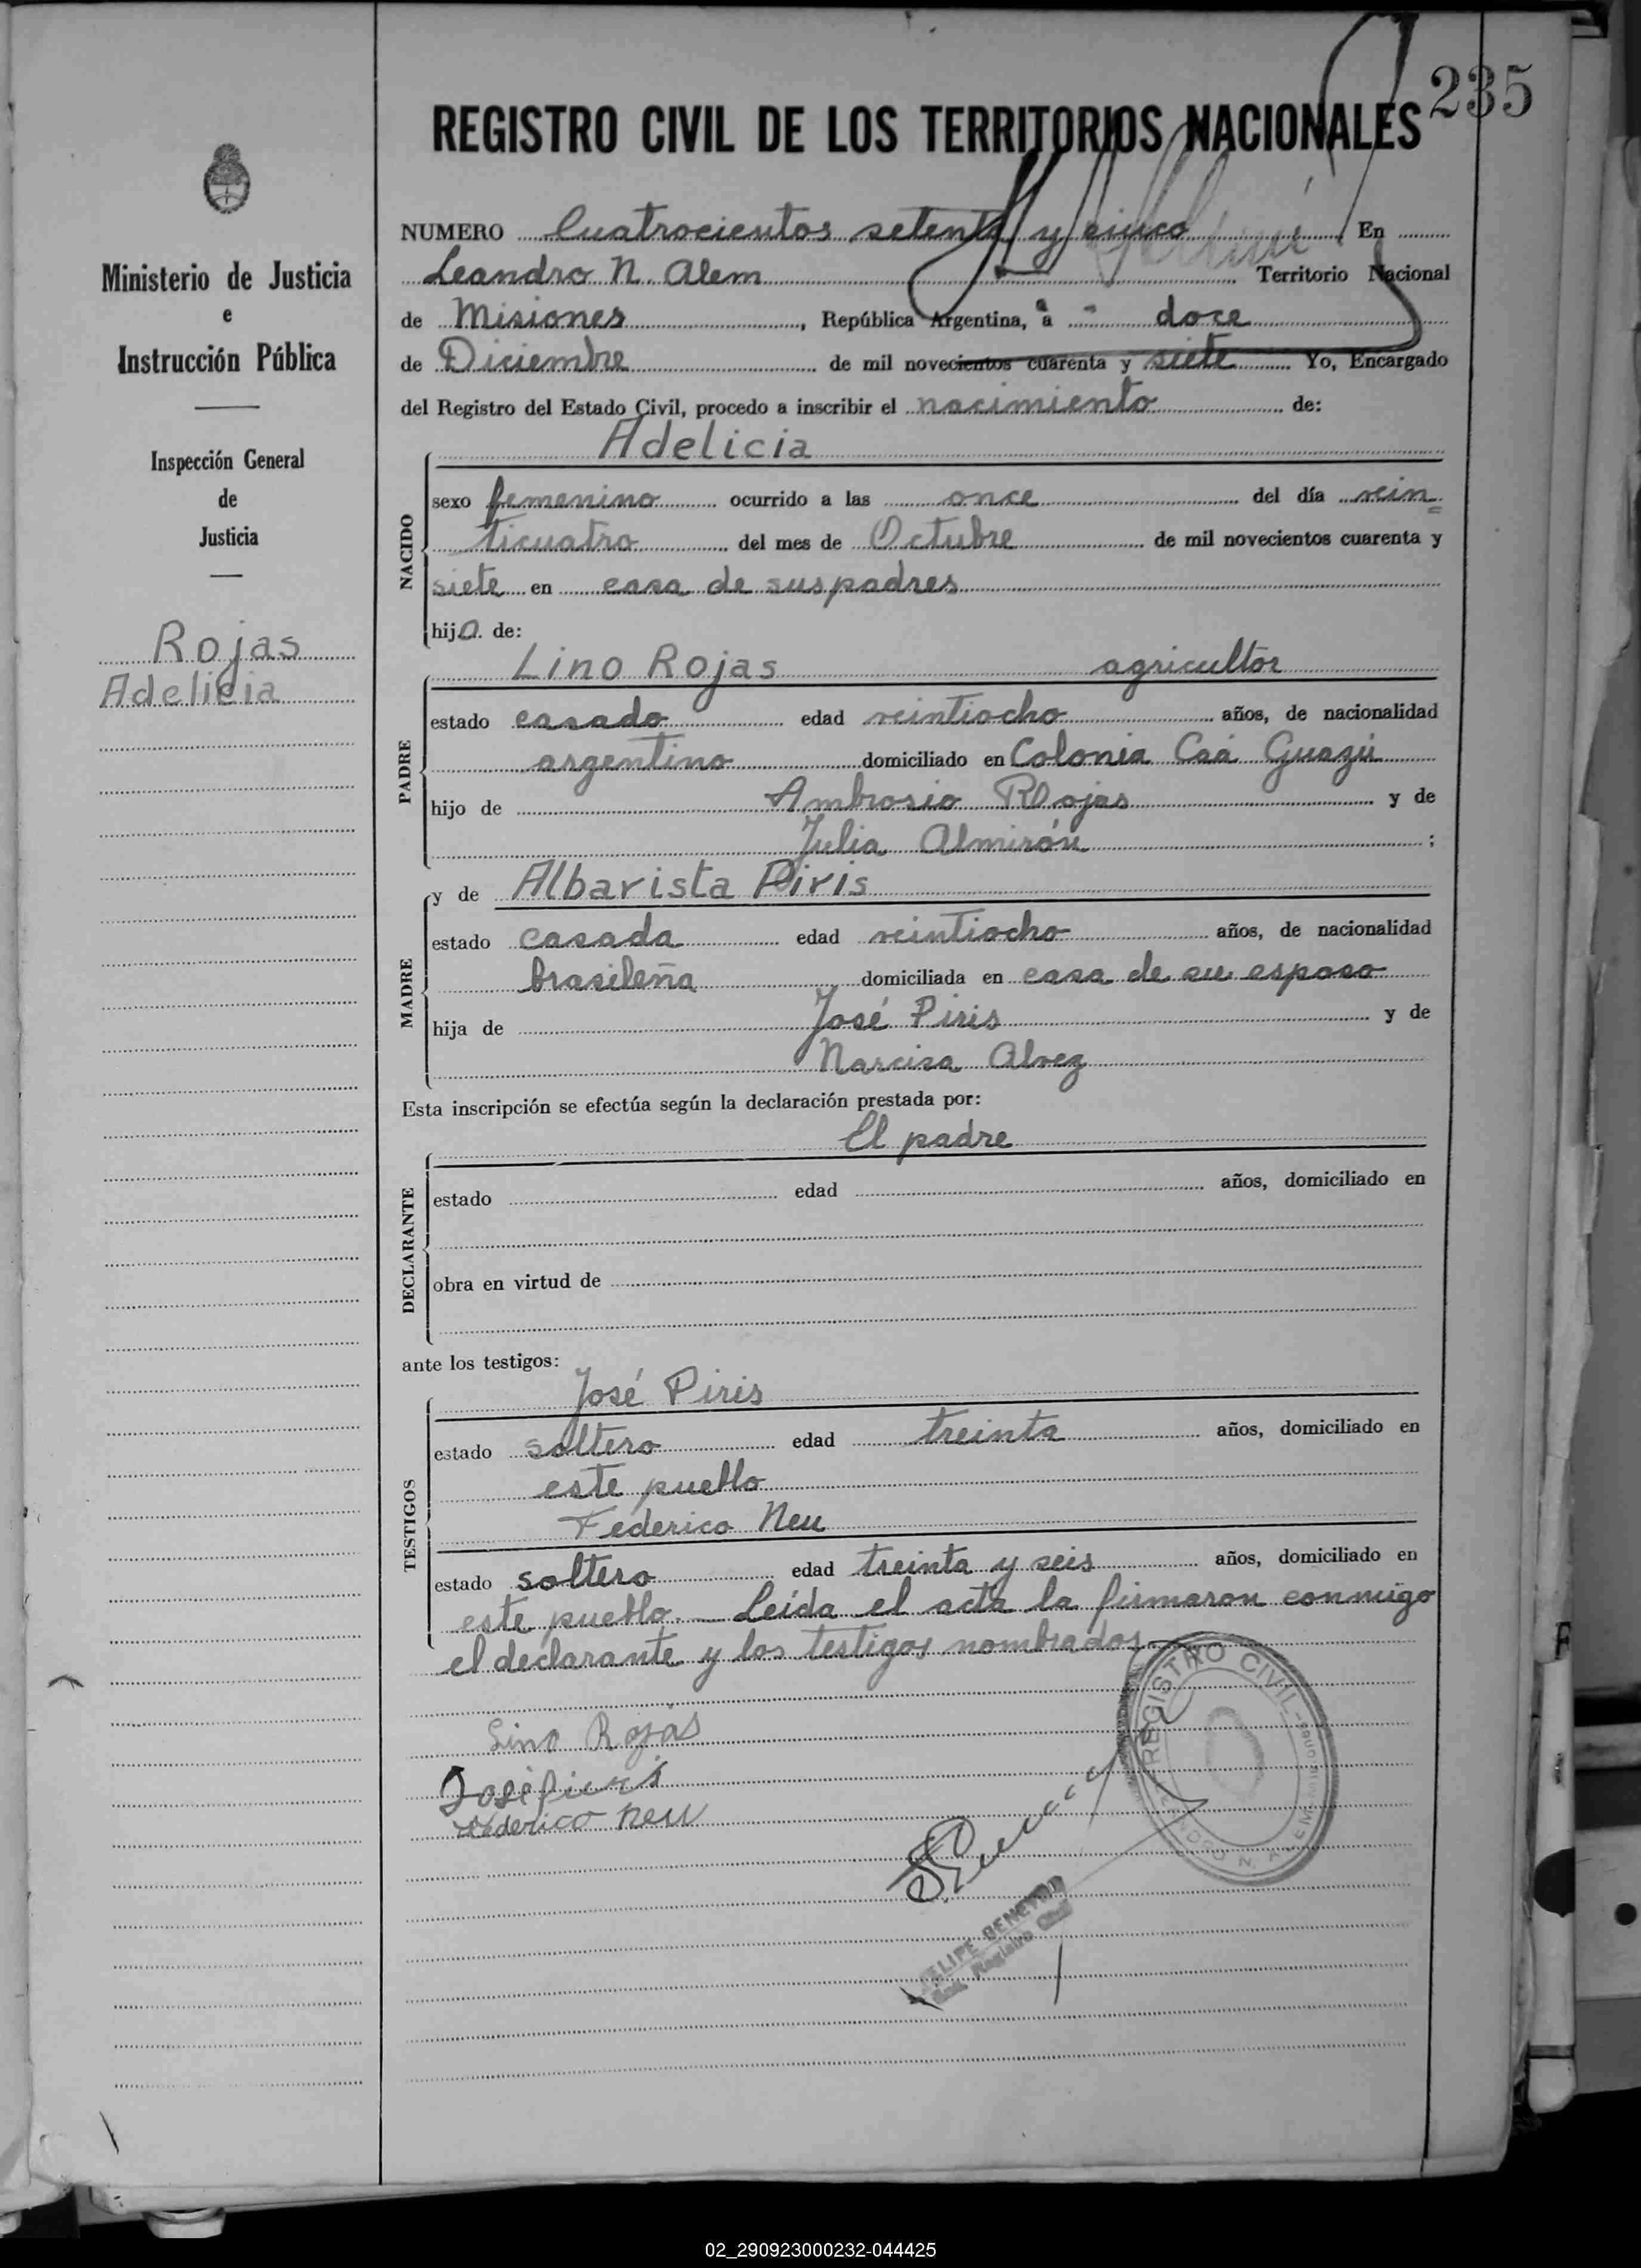 235
REGISTRO CIVIL DE LOS TERRITORIOS NACIONALES
Ministerio de Justicia
e
Instrucción Pública
Inspección General
de
Justicia
Rojas
Adelicia
NUMERO Cuatrocientos setenta y cinco En
Leandro N. Alem Territorio Nacional
de Misiones, República Argentina, a doce
de Diciembre de mil novecientos cuarenta y siete Yo, Encargado
del Registro del Estado Civil, procedo a inscribir el nacimiento de:
NACIDO
Adelicia
sexo femenino ocurrido a las once del día vein=
ticuatro del mes de Octubre de mil novecientos cuarenta y
siete en casa de sus padres
hija de:
PADRE
Lino Rojas agricultor
estado casado edad veintiocho años, de nacionalidad
argentino domiciliado en Colonia Caá Guazú
hijo de Ambrosio Rojas y de
Julia Almirón ;
MADRE
y de Albarista Piris
estado casada edad veintiocho años, de nacionalidad
brasileña domiciliada en casa de su esposo
hija de José Piris y de
Narcisa Alvez
Esta inscripción se efectúa según la declaración prestada por:
DECLARANTE
El padre
estado edad años, domiciliado en
obra en virtud de
ante los testigos:
TESTIGOS
José Piris
estado soltero edad treinta años, domiciliado en
este pueblo
Federico Neu
estado soltero edad treinta y seis años, domiciliado en
este pueblo. — Leída el acta la firmaron conmigo
el declarante y los testigos nombrados
Lino Rojas
José Piris
Federico Neu
REGISTRO CIVIL
FELIPE
Registro Civil
02_290923000232-044425